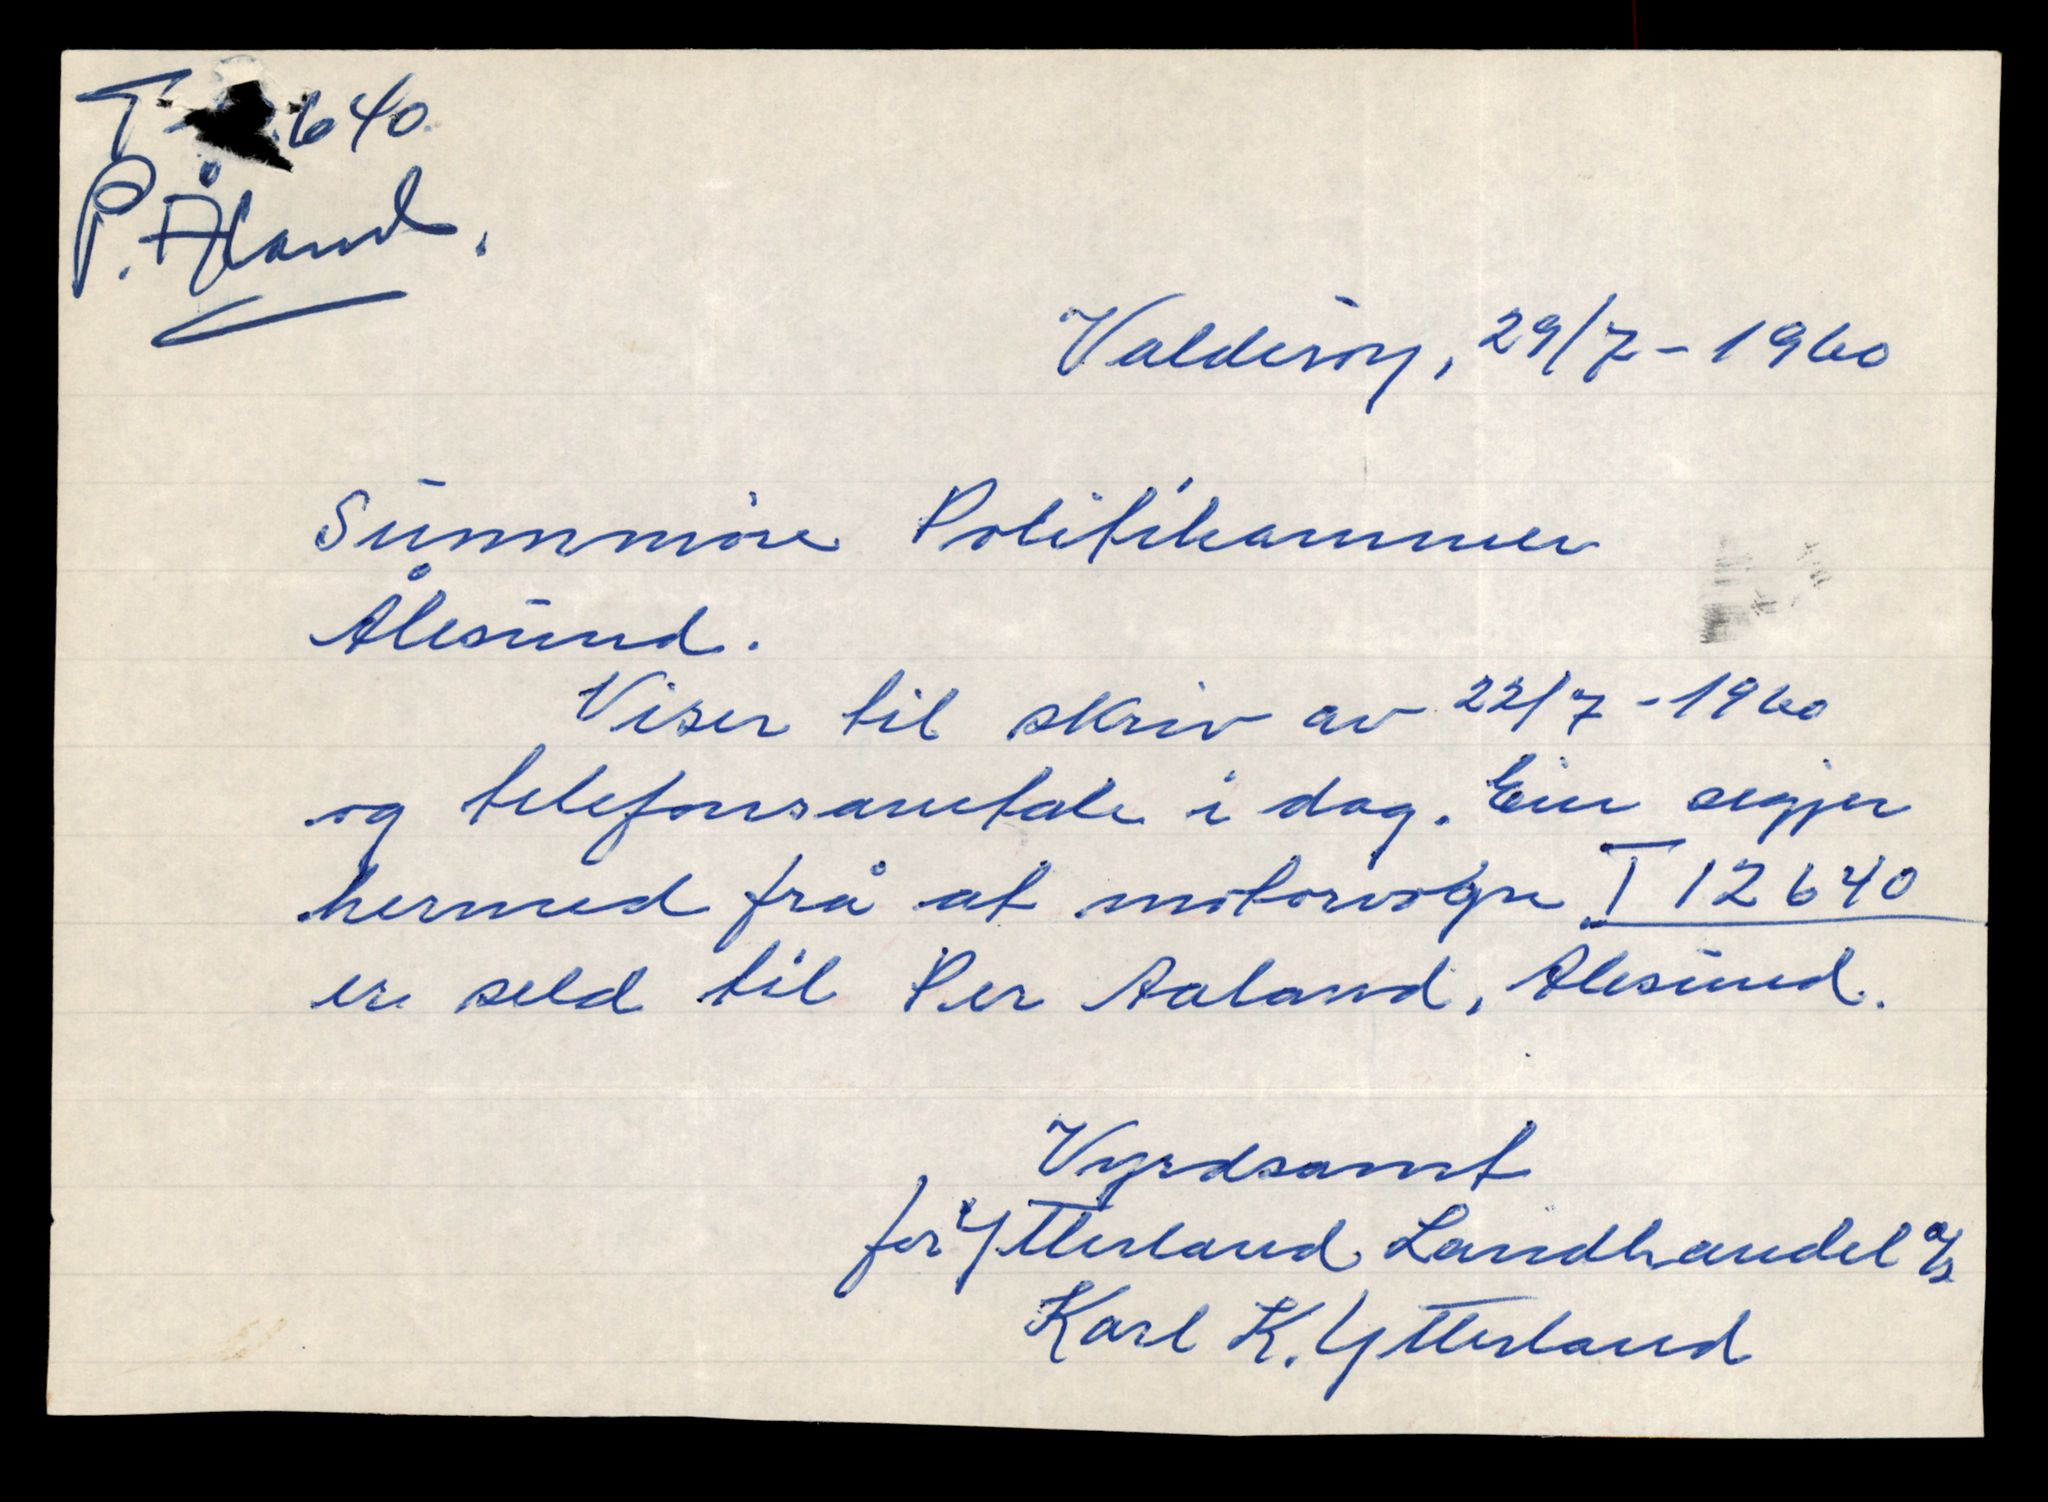 T 640.
P. Åland.
Valderöy, 29/7 - 1960
Sunnmöre Politikammer
Ålesund.
Viser til skriv av 22/7 - 1960
og telefonsamtale i dag. Ein segjer
hermed frå at motorvogn T 12640
er seld til Per Aaland, Ålesund.
Vyrdsamt
for Ytterland Landhandel a/s
Karl K. Ytterland